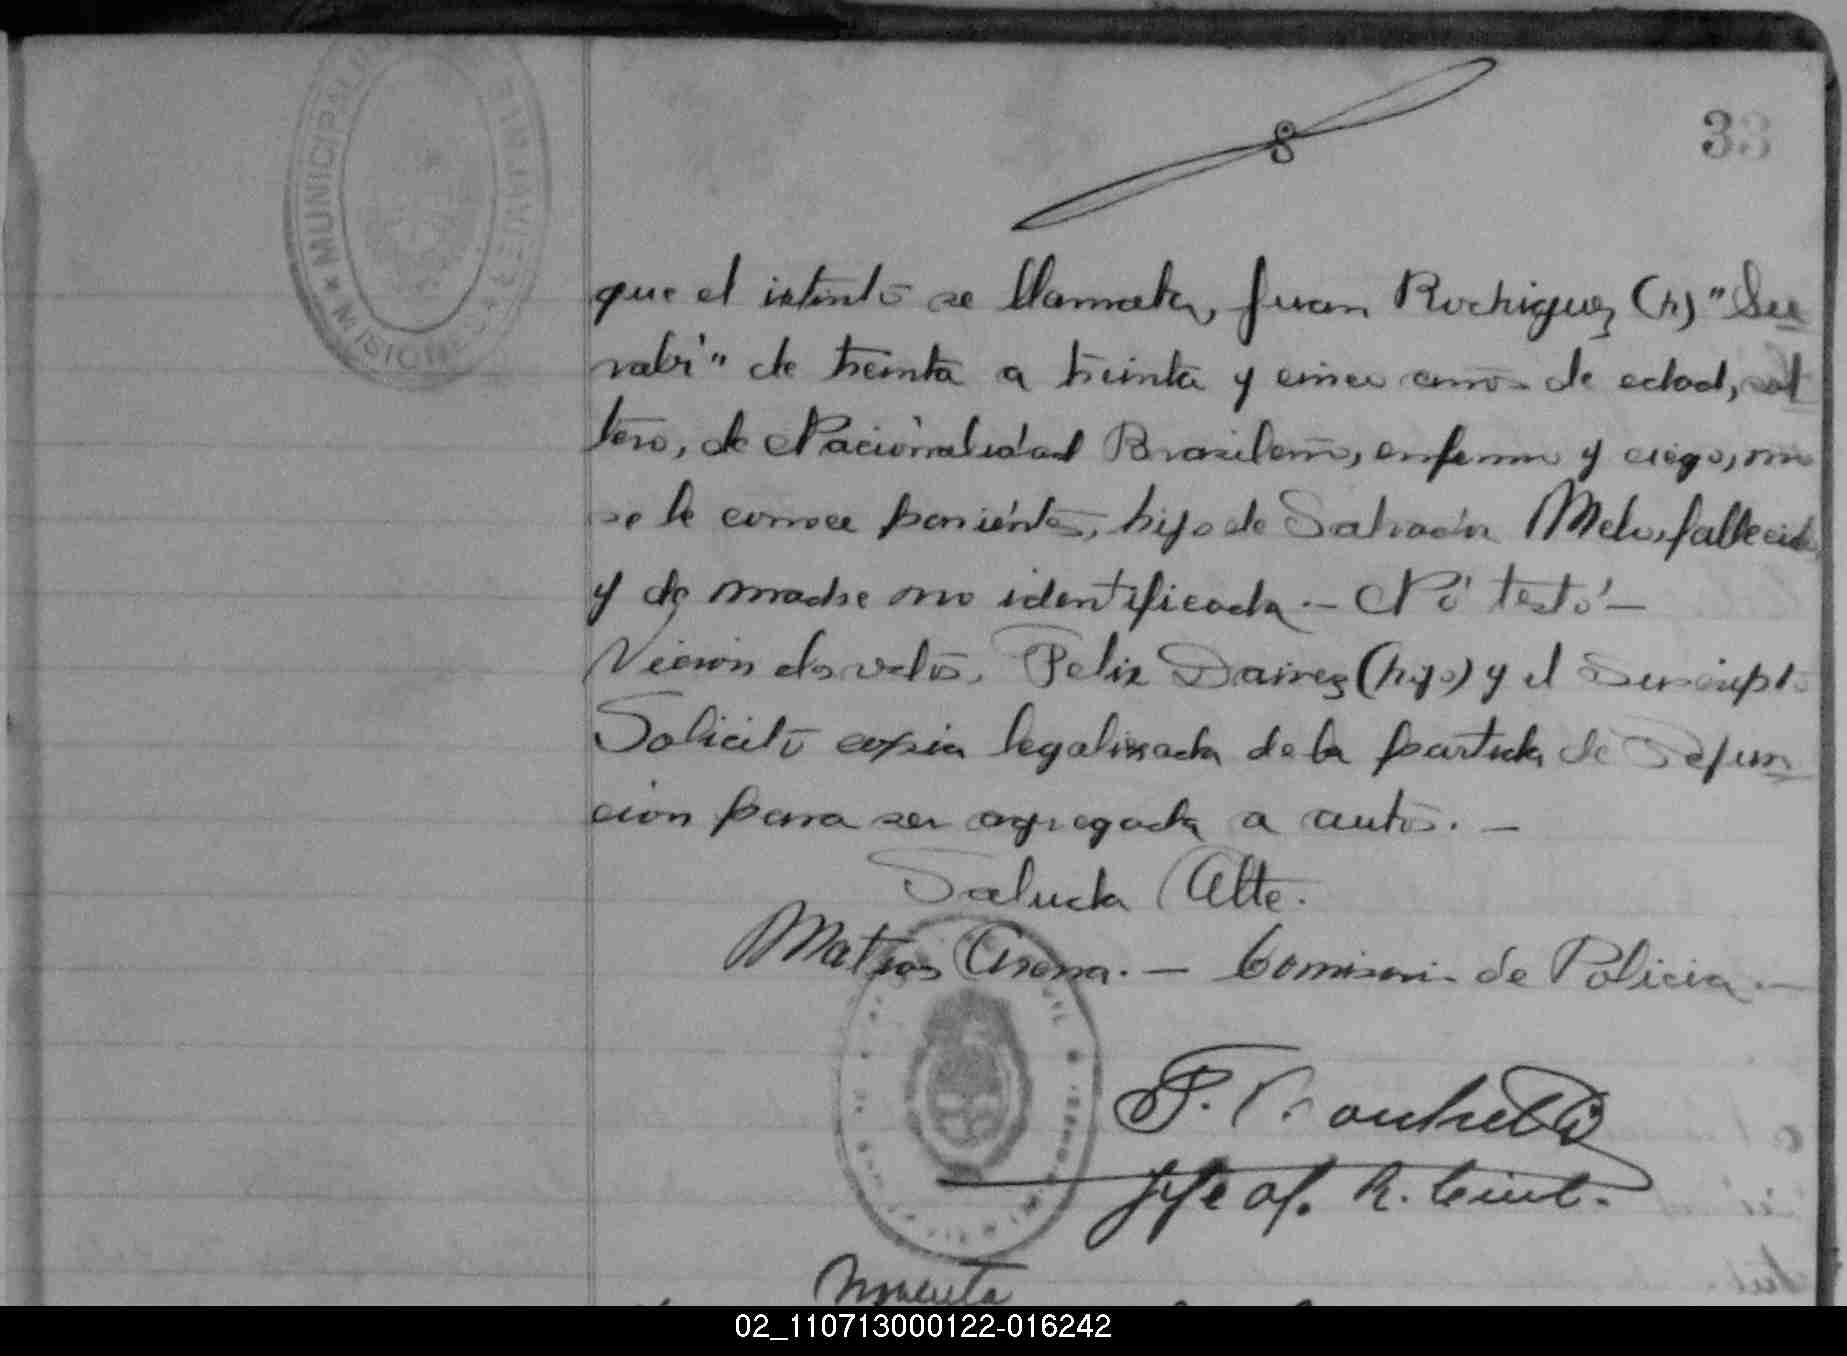 33
MUNICIPALI
MISIONES
que el extinto se llamaba, Juan Rodriguez (h) "Su
rabi" de treinta a treinta y cinco años de edad, sol
tero, de Nacionalidad Brasileño, enfermo y ciego, no
se le conoce parientes, hijo de Salvador Melo, fallecido
y de madre no identificada.- No testó-
Vieron el óvito, Feliz Dairez (hijo) y el Suscripto
Solicitó copia legalizada de la partida de Defun
cion para ser agregada a autos.-
Saluda Atte.
Matias Arena.- Comisario de Policia.-
Jefe of. R. Civil.
02_110713000122-016242